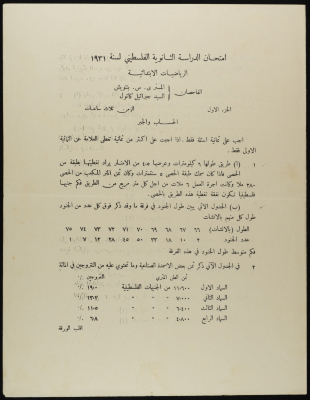 امتحان الدراسة الثانوية الفلسطيني لسنة ١٩٣١
الرياضيات الابتدائية
الفاحصان
المستر ي. س. بتنويش
السيد جبرائيل كاتول
الجزء الاول
الزمن ثلاث ساعات
الحساب والجبر
اجب على ثمانية اسئلة فقط. اذا اجبت على اكثر من ثمانية تعطى العلامة عن الثمانية
الاولى فقط.
١ (أ) طريق طولها ٦ كيلومترات وعرضها ٤،٥ من الامتار يراد تغطيتها بطبقة من
الحصى فاذا كان سمك طبقة الحصى ٥ سنتمترات وكان ثمن المتر المكعب من الحصى
٢٨٠ ملا وكانت اجرة العمل ٦ ملات من اجل كل متر مربع من الطريق فكم جنيها
فلسطينيا تكون نفقة تغطية هذه الطريق بالحصى.
(ب) الجدول الآتي يبين طول الجنود في فرقة ما وقد ذكر فوق كل عدد من الجنود
طول كل منهم بالانشات
الطول (بالانشات) ٦٦ ٦٧ ٦٨ ٦٩ ٧٠ ٧١ ٧٢ ٧٣ ٧٤ ٧٥
عدد الجنود ٢ ١٠ ١٨ ٣٣ ٥٠ ٤٥ ٢٨ ١٢ ٧ ١
فكم متوسط طول الجنود في هذه الفرقة
٢ في الجدول الآتي ذكر ثمن بعض الاسمدة الصناعية وما تحتوي عليه من النتروجين في المائة
ثمن الطن المتري النتروجين ٪
السماد الاول ١١،٦٠٠ من الجنيهات الفلسطينية ١٩،٠ ٪
السماد الثاني ٧،٠٠٠ " " " ١٣،٢ ٪
السماد الثالث ٦،٤٠٠ " " " ١١،٥ ٪
السماد الرابع ٤،٨٠٠ " " " ٦،٨ ٪
اقلب الورقة